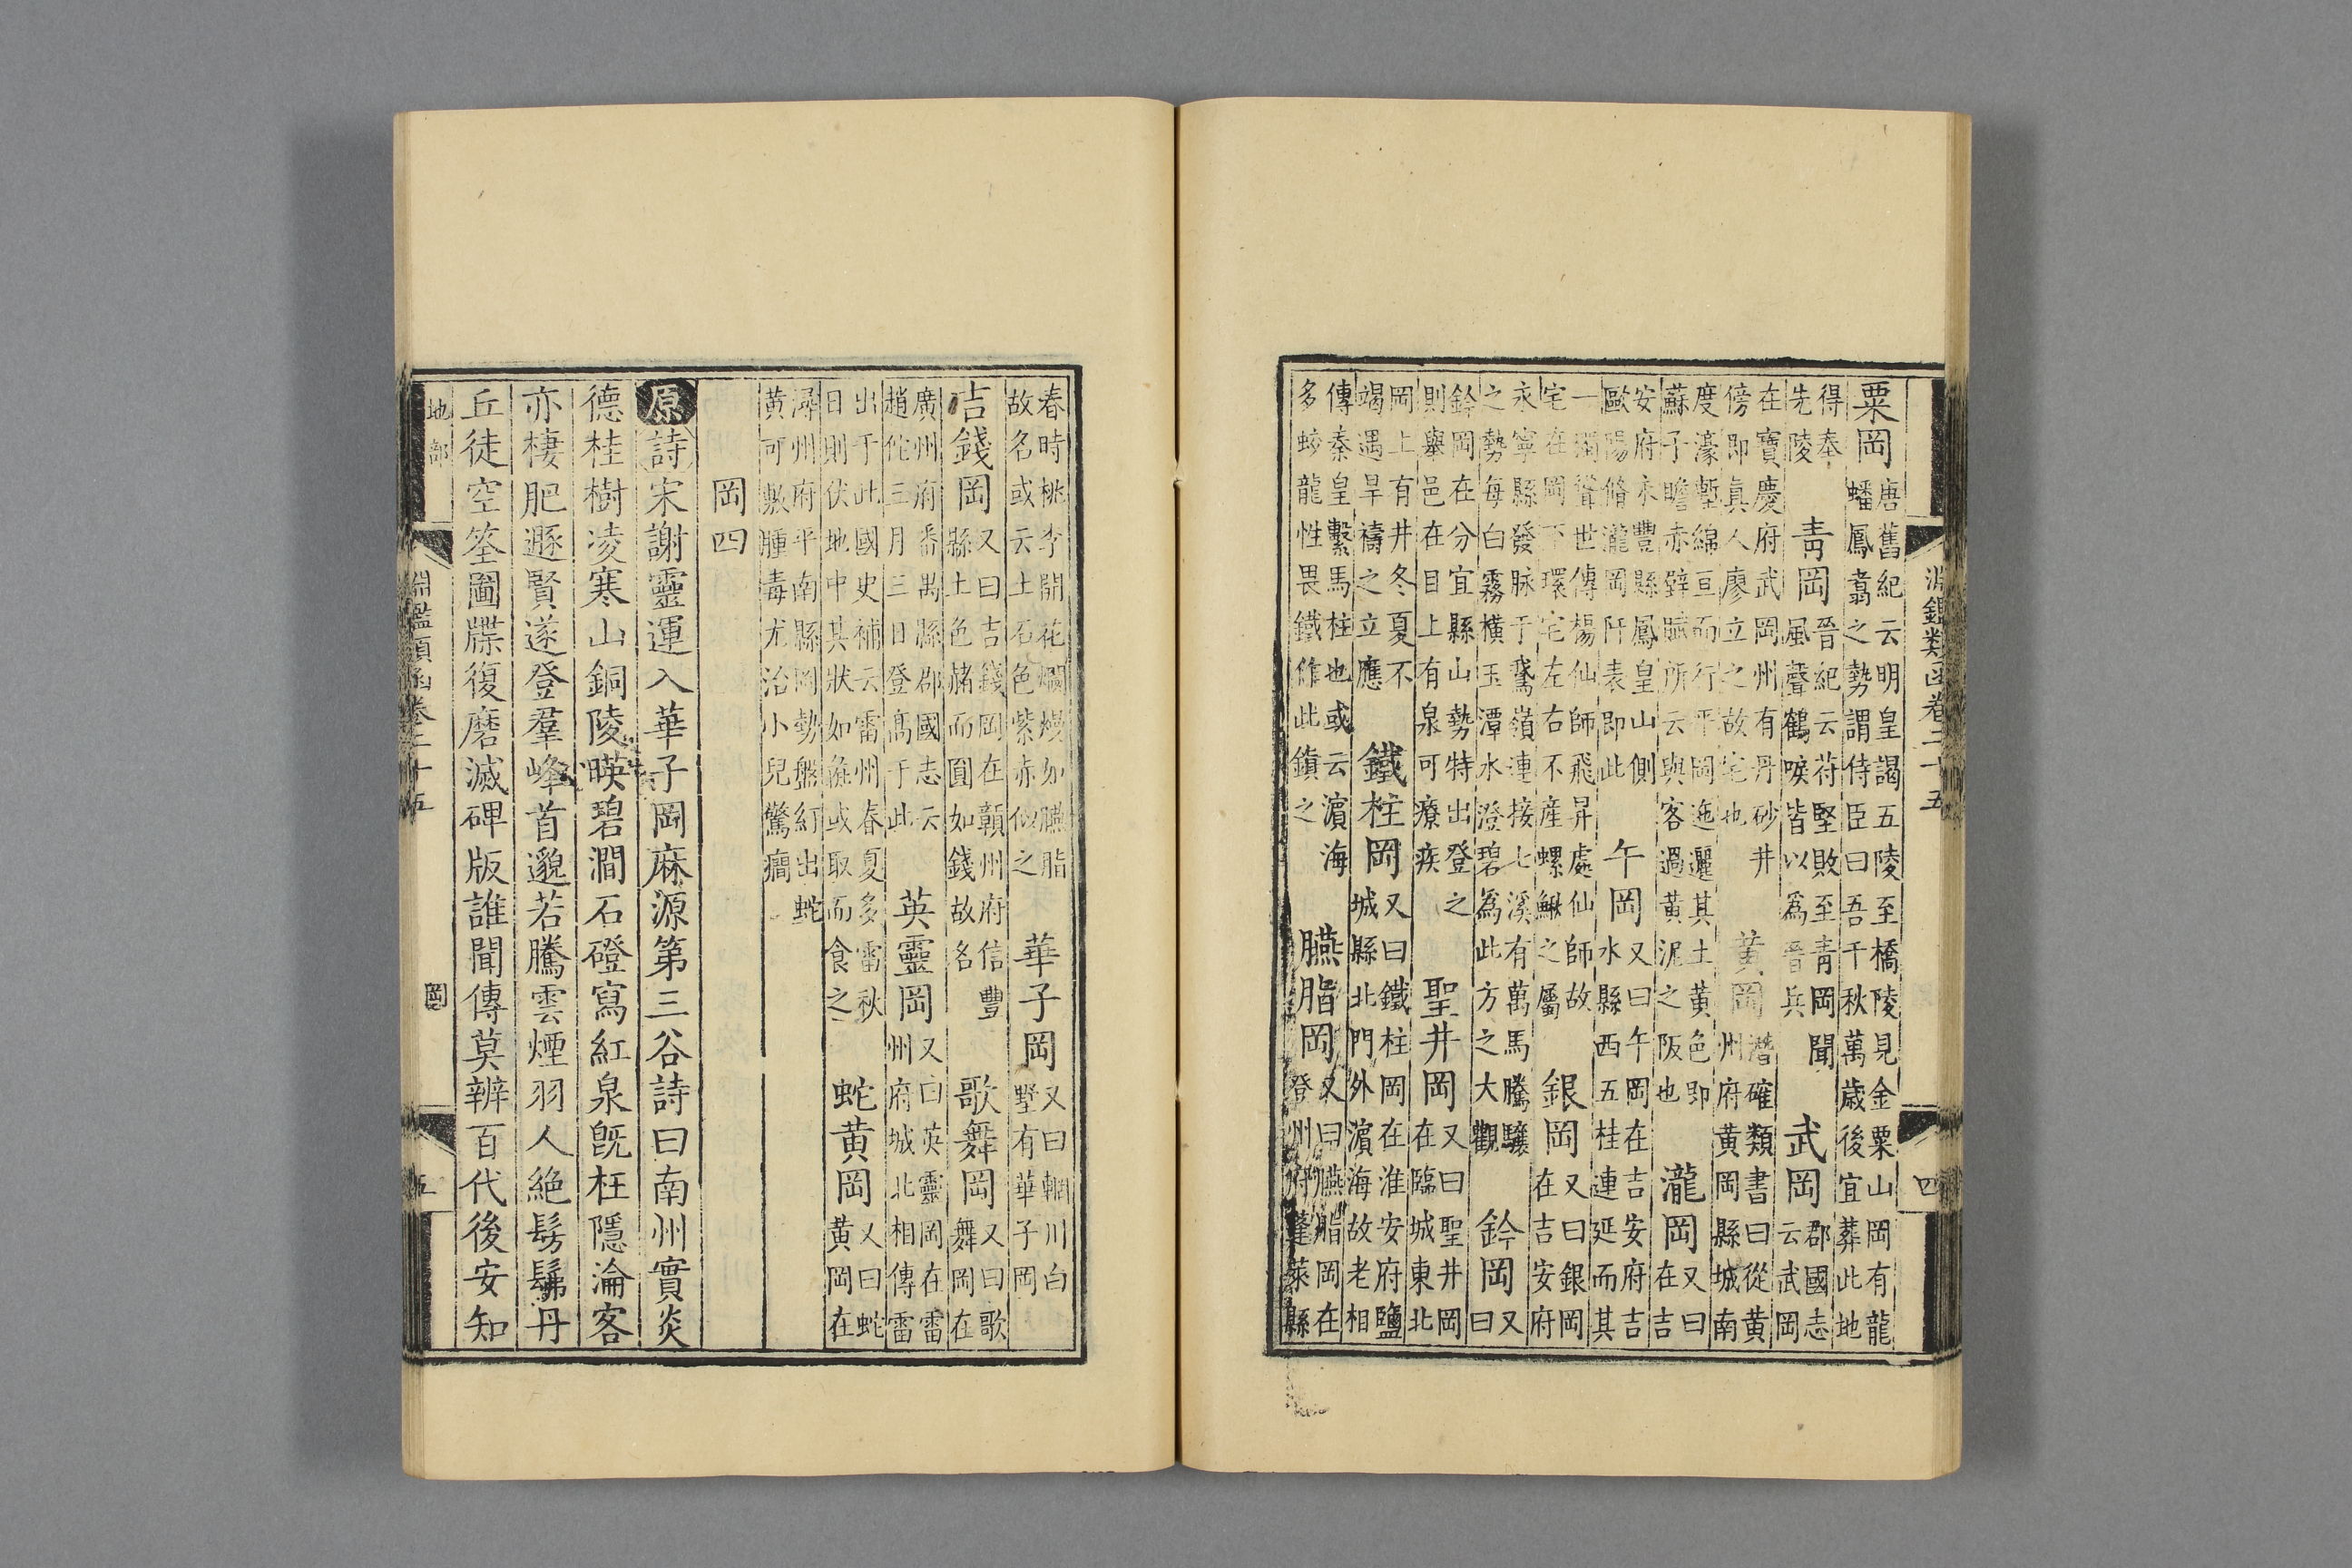 粟岡唐舊紀云明皇謁五陵至橋陵見金粟山岡有龍蟠鳳翥之勢謂侍臣曰吾千秋萬歲後宜葬此地
得奉先陵青岡晉紀云苻堅敗至青岡聞風聲鶴唳皆以為晉兵武岡郡國志云武岡
在寶慶府武岡州有丹砂井傍即真人廖立之故宅也黃岡潛確類書曰從黃州府黃岡縣城南
度濠塹綿亘而行平岡迤邐其土黃色即蘇子瞻赤壁賦所云與客過黃泥之阪也瀧岡又曰在吉
安府永豐縣鳳皇山側歐陽脩瀧岡阡表即此午岡又曰午岡在吉安府吉水縣西五桂連延而其
一岡聳世傳楊仙師飛昇處仙師故宅在岡下環宅左右不產螺鰍之屬銀岡又曰銀岡在吉安府
永寧縣發脉于鵞嶺連接七溪有萬馬騰驤之勢每白霧橫玉潭水澄碧為此方之大觀鈐岡又曰
鈐岡在分宜縣山勢特出登之則舉邑在目上有泉可療疾聖井岡又曰聖井岡在臨城東北
岡上有井冬夏不竭遇旱禱之立應鐵柱岡又曰鐵柱岡在淮安府鹽城縣北門外濵海故老相
傳秦皇繫馬柱也或云濵海多蛟龍性畏鐵作此鎮之臙脂岡又曰臙脂岡在登州府蓬萊縣
淵鑑類函卷二十五
四
春時桃李開花爛熳如臙脂故名或云土石色紫赤似之華子岡又曰輞川白墅有華子岡
吉錢岡又曰吉錢岡在贛州府信豐縣土色赭而圓如錢故名歌舞岡又曰歌舞岡在
廣州府番禺縣郡國志云趙佗三月三日登高于此英靈岡又曰英靈岡在雷州府城北相傳雷
出于此國史補云雷州春夏多雷秋日則伏地中其狀如彘或取而食之蛇黃岡又曰蛇黃岡在
潯州府平南縣岡勢盤紆出蛇黃可敷腫毒尤治小兒驚癇
岡四
原詩宋謝靈運入華子岡麻源第三谷詩曰南州實炎
德桂樹凌寒山銅陵暎碧澗石磴寫紅泉旣枉隱淪客
亦棲肥遯賢遂登羣峰首邈若騰雲煙羽人絕髣髴丹
丘徒空筌圖牒復磨滅碑版誰聞傳莫辨百代後安知
地部
淵鑑類函卷二十五
岡
五